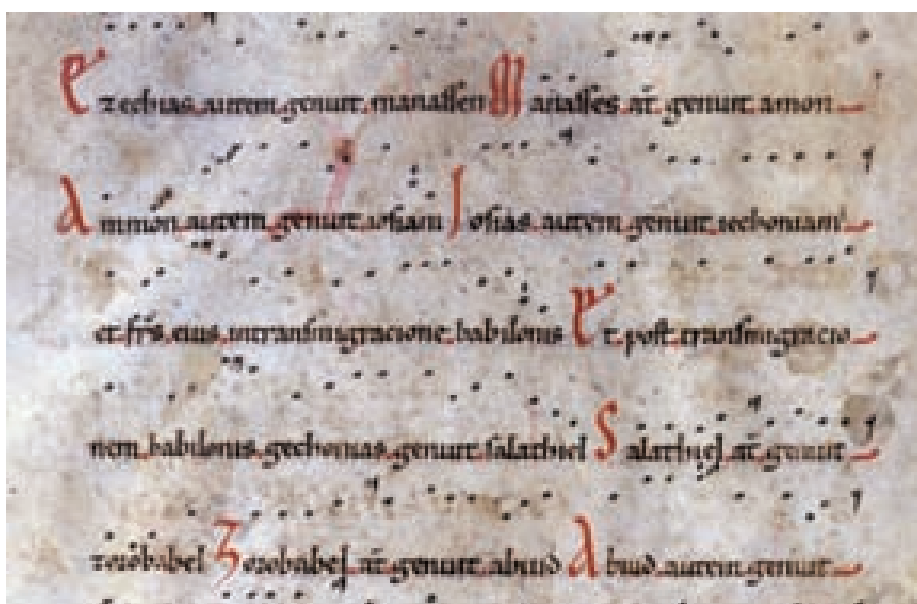 Ezechias autem genuit manassen Manasses aũt genuit amon
Ammon autem genuit iosiam Iosias autem genuit iechoniam
et fr̃s eius intransmigracione babilonis Et post transmigracio
nem babilonis gechonias genuit salathiel Salathiel aũt genuit
zorobabel Zorobabel aũt genuit abiud Abiud autem genuit